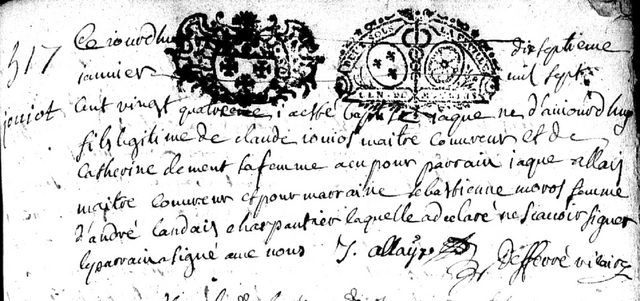 517
Ce iourdhuy dixseptieme
ianuier mil sept
jouiot
Cent vingt quatrieme iaesté baptisé iaque né d'aujourdhuy
fils legitime de claude iouios maitre couureur et de
Catherine clement sa femme a eu pour parrain iaque allais
maitre couureur et pour marraine sebastienne moros femme
d'andré landais charpantier laquelle a declaré ne scauoir signer
le parrain a signé auec nous J. allays defferré vicaire